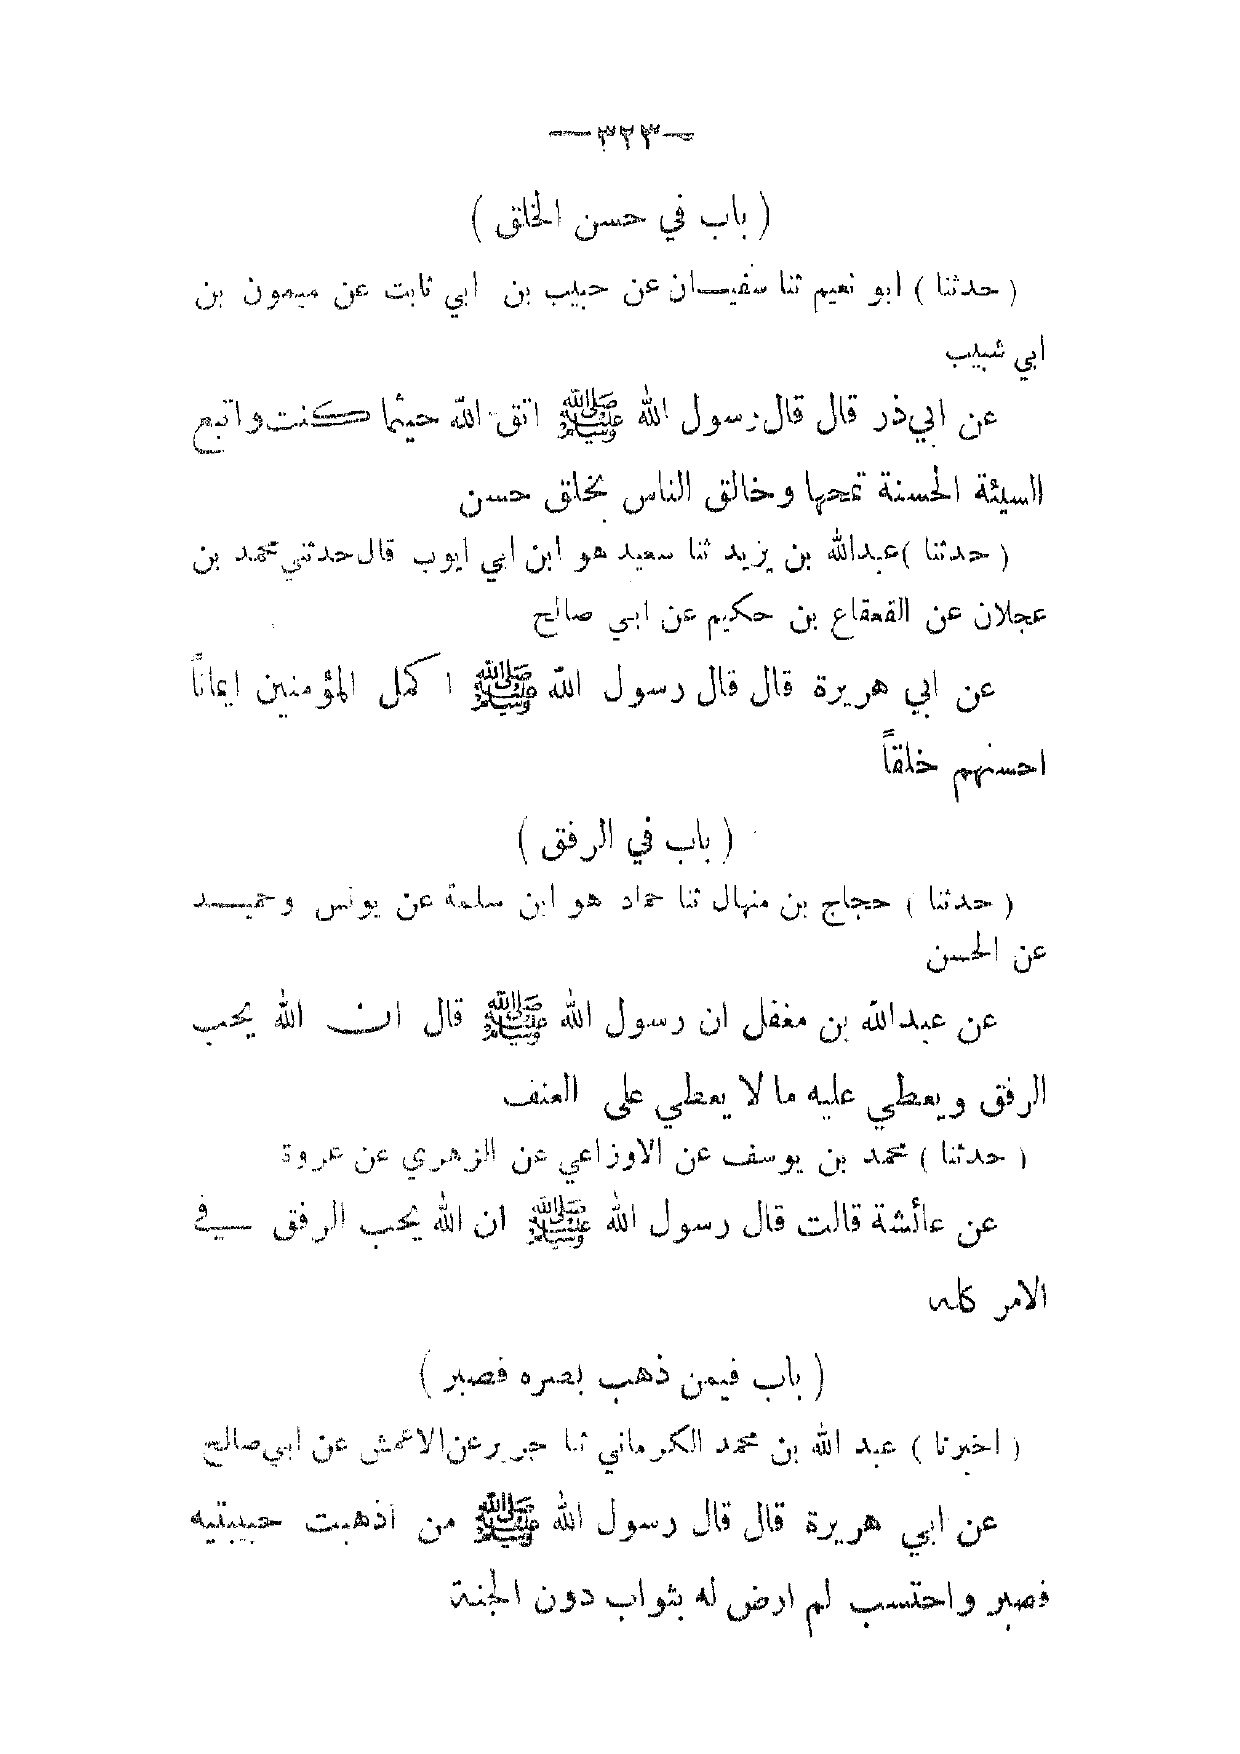 —٣٢٣—
( باب في حسن الخلق )
( حدثنا ) ابو نعيم ثنا سفيان عن حبيب بن ابي ثابت عن ميمون بن
ابي شبيب
عن ابي ذر قال قال رسول الله ﷺ اتق الله حيثما كنت واتبع
السيئة الحسنة تمحها وخالق الناس بخلق حسن
( حدثنا ) عبدالله بن يزيد ثنا سعيد هو ابن ابي ايوب قال حدثني محمد بن
عجلان عن القعقاع بن حكيم عن ابي صالح
عن ابي هريرة قال قال رسول الله ﷺ اكمل المؤمنين ايماناً
احسنهم خلقاً
( باب في الرفق )
( حدثنا ) حجاج بن منهال ثنا حماد هو ابن سلمة عن يونس وحميد
عن الحسن
عن عبدالله بن مغفل ان رسول الله ﷺ قال ان الله يحب
الرفق ويعطي عليه ما لا يعطي على العنف
( حدثنا ) محمد بن يوسف عن الاوزاعي عن الزهري عن عروة
عن عائشة قالت قال رسول الله ﷺ ان الله يحب الرفق في
الامر كله
( باب فيمن ذهب بصره فصبر )
( اخبرنا ) عبد الله بن محمد الكرماني ثنا جرير عن الاعمش عن ابي صالح
عن ابي هريرة قال قال رسول الله ﷺ من اذهبت حبيبتيه
فصبر واحتسب لم ارض له بثواب دون الجنة